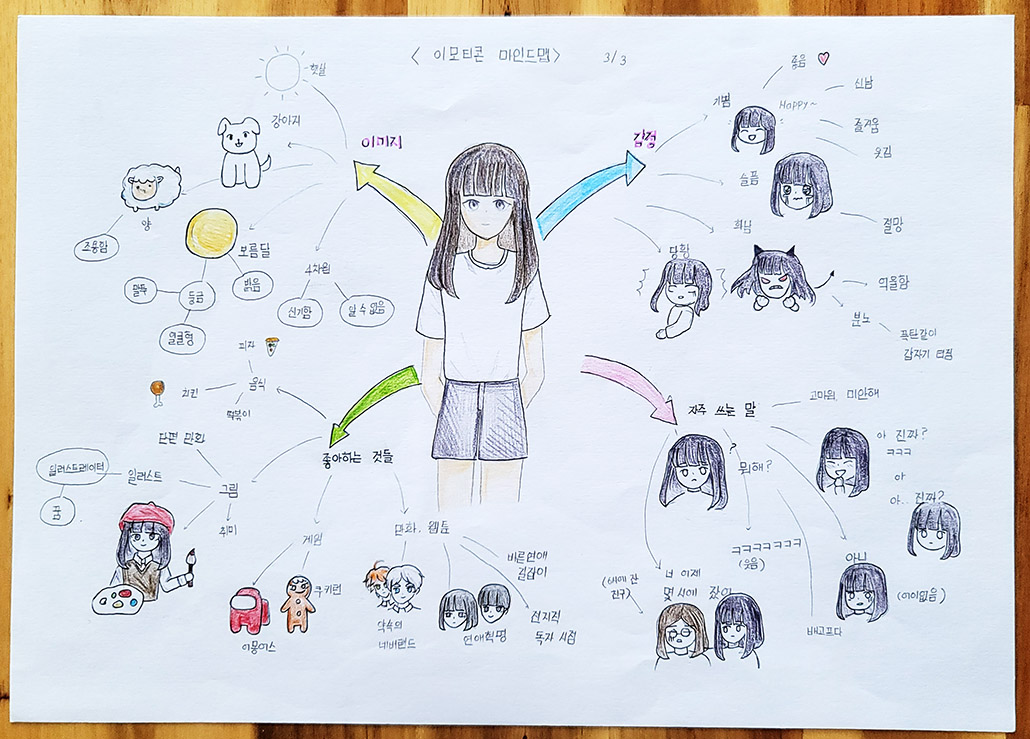 < 이모티콘 마인드맵 > 3/3
이미지
햇살
강아지
양
조용함
보름달
밝음
둥금
얼굴형
4차원
신기함
알 수 없음
감정
기쁨
좋음
Happy~
신남
즐거움
웃김
슬픔
절망
화남
억울함
분노
폭탄같이
갑자기
당황
좋아하는 것들
음식
피자
치킨
떡볶이
그림
단편 만화
일러스트
일러스트레이터
꿈
취미
게임
어몽어스
쿠키런
만화, 웹툰
약속의
네버랜드
연애혁명
바른연애
길잡이
전지적
독자 시점
자주 쓰는 말
고마워, 미안해
?
뭐해?
아 진짜?
ㅋㅋㅋ
아
아.. 진짜?
아니
(어이없음)
배고프다
ㅋㅋㅋㅋㅋㅋㅋ
(웃음)
너 이제
몇 시에 잤어
친구)